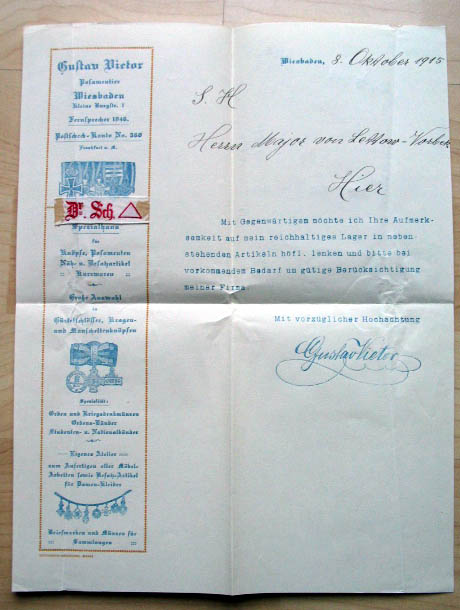 Gustav Victor
Posamentier
Wiesbaden
Kleine Burgstr. 1
Fernsprecher 1940.
Postscheck-Konto No. 380
Frankfurt a. M.
Dr. Sch.
Spezialhaus
für
Knöpfe, Posamenten
Näh- u. Besatzartikel
Kurzwaren
Große Auswahl
in
Gürtelschlösser, Kragen-
und Manschettenknöpfen
Spezialität:
Orden und Kriegsdenkmünzen
Ordens-Bänder
Studenten- u. Nationalbänder
Eigenes Atelier
zum Anfertigen aller Möbel-
Arbeiten sowie Besatz-Artikel
für Damen-Kleider
Briefmarken und Münzen für
Sammlungen
Wiesbaden, 8. Oktober 1915
S. H
Herrn Major von Lettow-Vorbeck
Hier
Mit Gegenwärtigen möchte ich Ihre Aufmerk-
samkeit auf mein reichhaltiges Lager in neben-
stehenden Artikeln höfl. lenken und bitte bei
vorkommendem Bedarf um gütige Berücksichtigung
meiner Firma.
Mit vorzüglicher Hochachtung
Gustav Victor